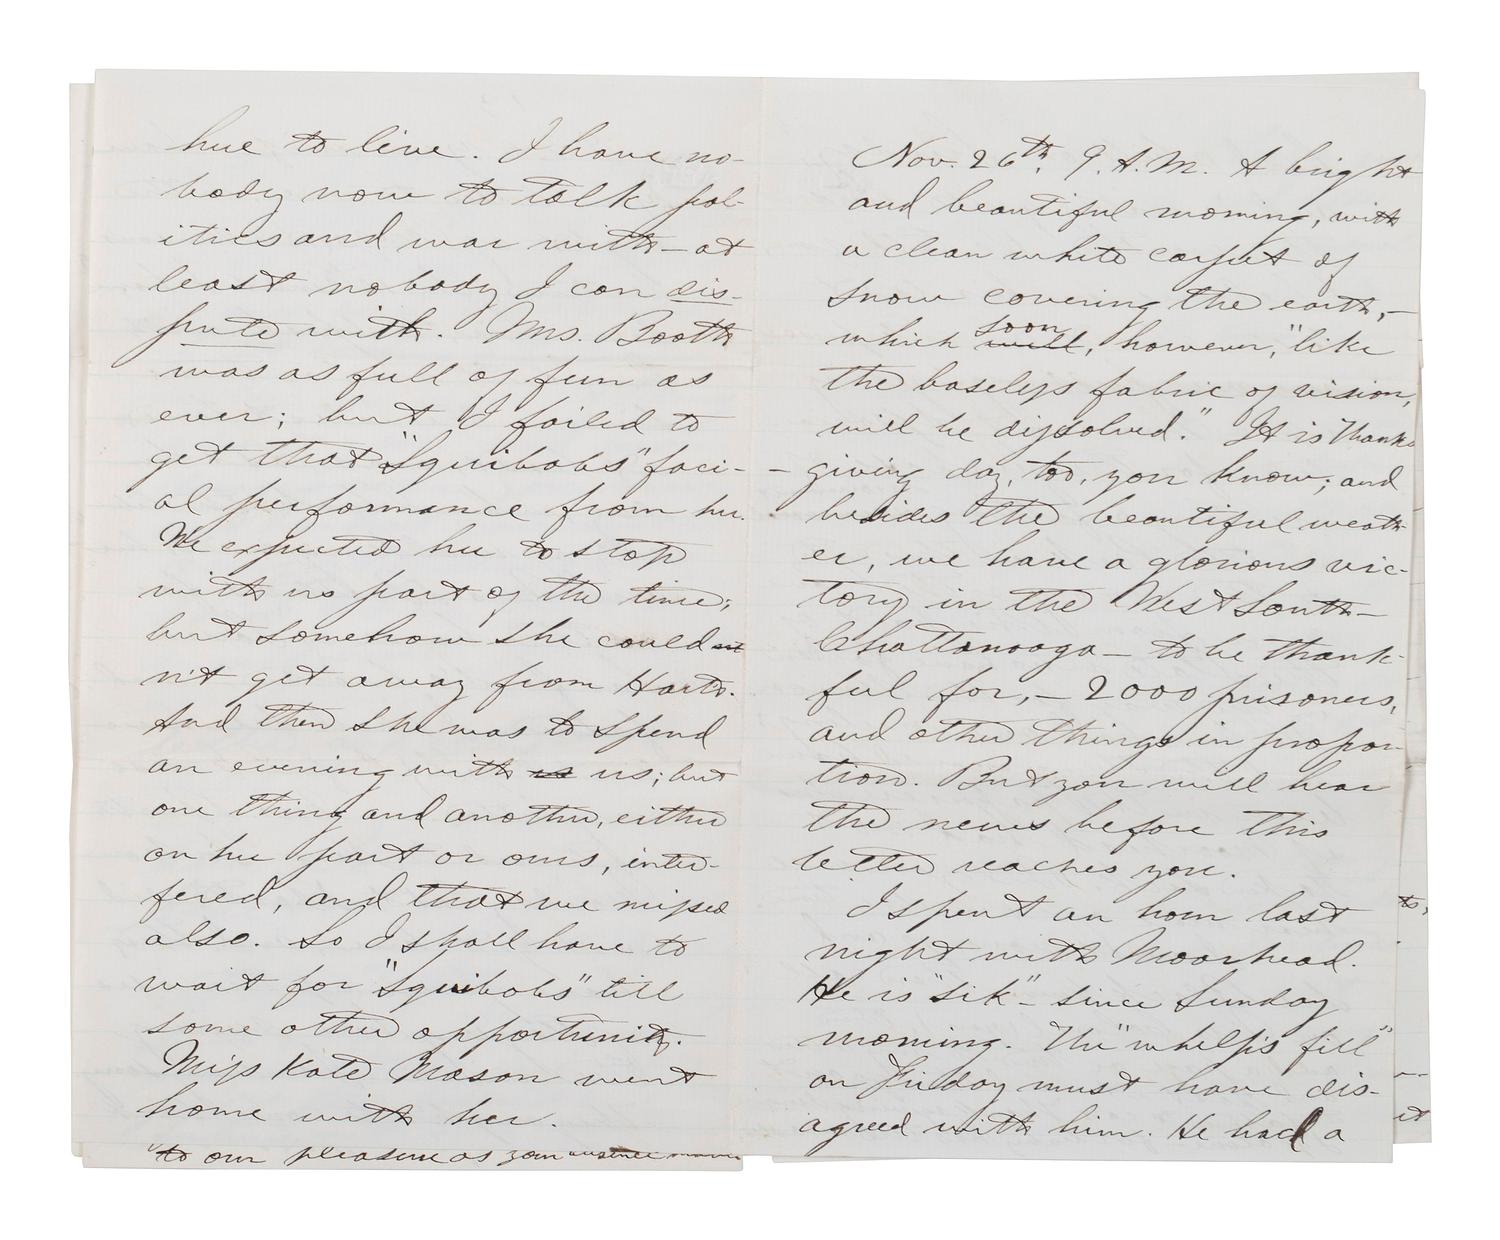 her to live. I have no-
body now to talk pol-
itics and war with—at
least nobody I can dis-
pute with. Mrs. Booth
was as full of fun as
ever; but I failed to
get that "Squibobs" faci-
al performance from her.
We expected her to stop
with us part of the time;
but somehow she could
n't get away from Harts.
And then she was to spend
an evening with us us; but
one thing and another, either
on her part or ours, inter-
fered, and that we missed
also. So I shall have to
wait for "Squibobs" till
some other opportunity.
Miss Kate Mason went
home with her.
to our pleasure as your
Nov. 26th, 9. A.M. A bright
and beautiful morning, with
a clean white carpet of
snow covering the earth,—
which will soon, however, "like
the baseless fabric of vision,
will be dissolved." It is Thanks
-giving day, too, you know; and
besides the beautiful weath-
er, we have a glorious vic-
tory in the West South—
Chattanooga—to be thank-
ful for,—2000 prisoners,
and other things in propor-
tion. But you will hear
the news before this
letter reaches you.
I spent an hour last
night with Moorhead.
He is "sik"—since Sunday
morning. The "whelps fill"
on Friday must have dis-
agreed with him. He had a